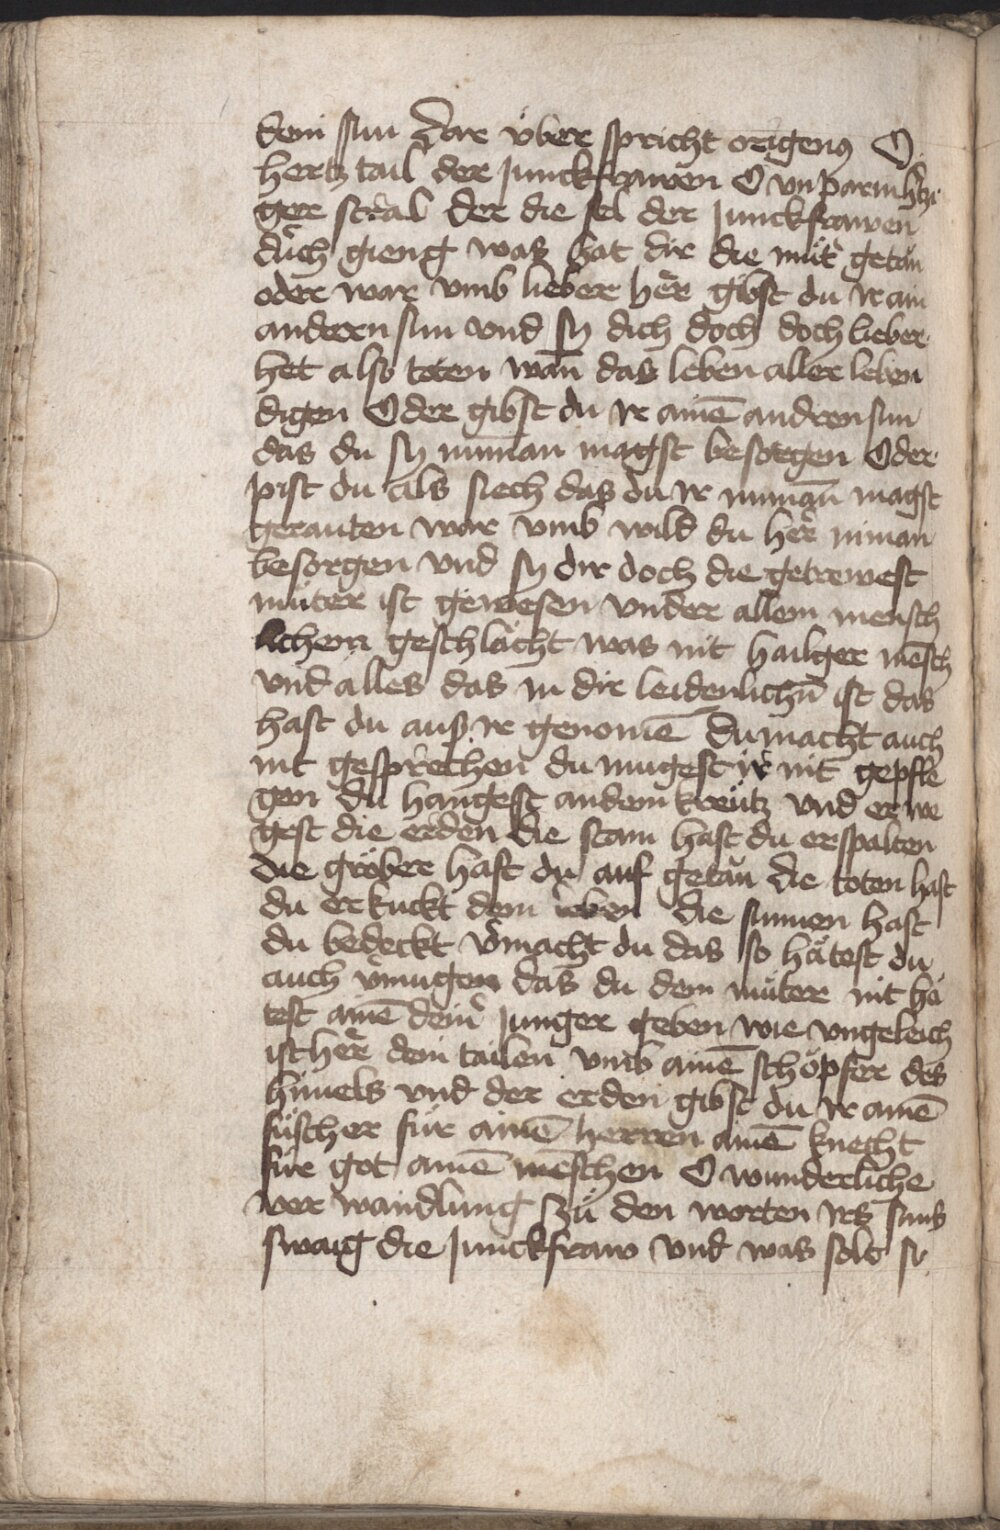 dein sun Dar über spricht origenus O
hertz tail der Junckfrawen O vn parmhtzi
ger stral der die sel der Junckfrawen
duͤch gieng was hat dir die mutͤ getan
oder war vmb lieber her gibst du ir ain
anderen sun vnd sy dich doch doch lieber
het also toten wan̄ das leben aller leben
digen Oder gibst du ir ainē andren sun
das du sy nyman magst besorgen Oder
pist du als siech das du ir niman̄ magst
geraiten war vmb wild du her niman
besorgen vnd sy dir doch die getrewest
muter ist gewesen vnder allem mensch
lichem geschlächt was nit hailger mēsch
vnd alles das in dir leidenlichn̄ ist das
hast du auß ir genomē Du macht auch
nit gesprechen du mugest ir nit gepfle
gen du hangest an dem kreutz vnd erwe
gest die erden die stain hast du erspalten
die gröber hast du auf getan die toten hast
du erkuckt dem leben die sunnen hast
du bedeckt vͤmacht du das so hätest du
auch vͤmugen das du dein muter nit hä
test ainē deinͤ Junger geben wie vngeleich
ist her dein tailen vmb ainē schöpfer des
himels vnd der erden gibst du ir ainē
fuscher für ainē herren ainē knecht
für got ainē mēschen O wunderliche
ver wandlung Zu den worten irs suns
swaig die Junckfraw vnd was solt si